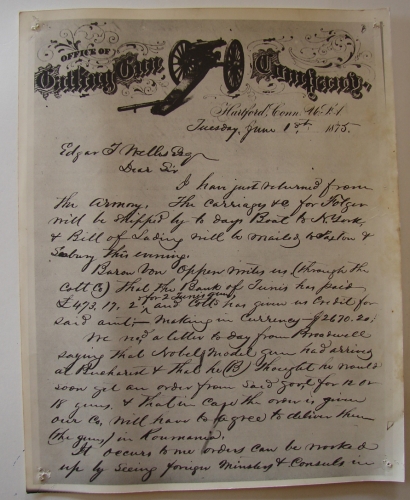 OFFICE OF
Gatling Gun Company.
Hartford, Conn. U.S.A.
Tuesday, June 1st 1875.
Edgar T Welles Esq
Dear Sir
I have just returned from
the Armory. The Carriages &c for Folger
will be shipped by to days Boat to N York,
& Bill of Lading will be mailed to Paxton &
Seabury this evening.
Baron Von Oppen writes us (through the
Colt Co) that the Bank of Tunis has paid
£473.17.2 for 2 Tunis guns and Colts has given us Credit for
said amt, making in Currency $2670.20;
We recd a letter to day from Broadwell
saying that Nobel Model gun had arrived
at Bucharest & that he (B) thought he would
soon get an order from said govt for 12 or
18 guns. & that in case the order is given
our Co, will have to agree to deliver them
(the guns) in Roumania.
It occurs to me orders can be worked
up by seeing foreign Ministers & Consuls in